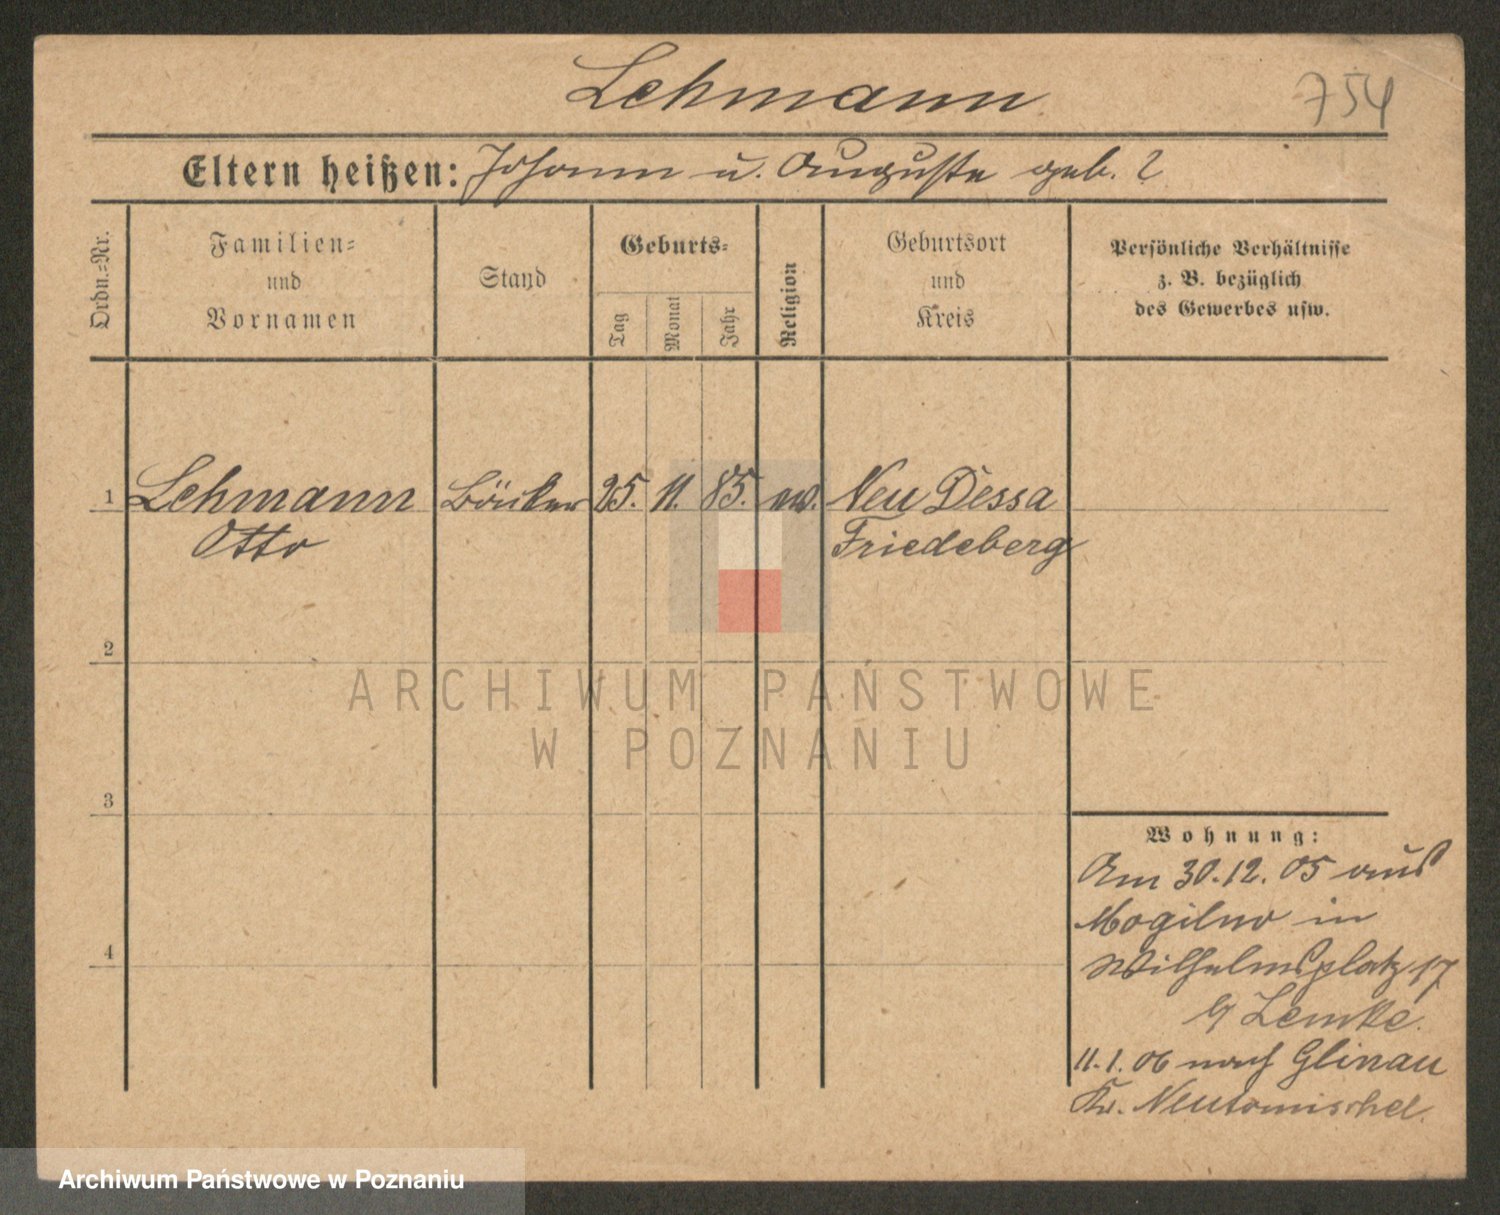 Lehmann
754
Eltern heißen: Johann u. Auguste geb. ?
Ordn.-Nr.
Familien-
und
Vornamen
Stand
Geburts-
Tag
Monat
Jahr
Religion
Geburtsort
und
Kreis
Persönliche Verhältnisse
z. B. bezüglich
des Gewerbes usw.
1 Lehmann Bäcker 25. 11. 85. ev. Neu Dessa
Otto Friedeberg
2
ARCHIWUM PAŃSTWOWE
W POZNANIU
3
Wohnung:
Am 30.12.05 aus
Mogilno in
4
Wilhelmsplatz 17
b/ Lemke.
11.1.06 nach Glinau
Kr. Neutomischel.
Archiwum Państwowe w Poznaniu